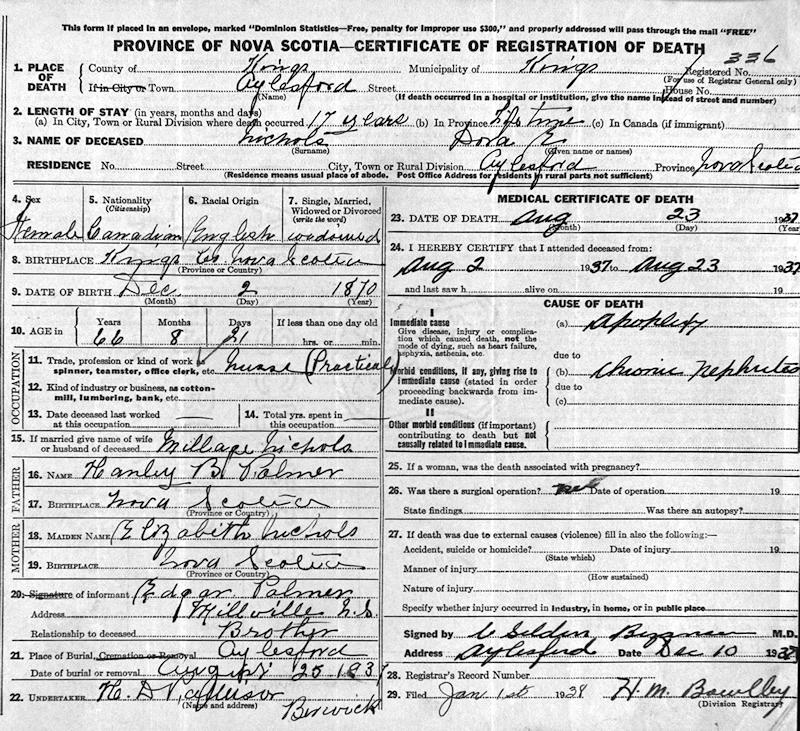 This form if placed in an envelope, marked "Dominion Statistics—Free, penalty for improper use $300," and properly addressed will pass through the mail "FREE"
PROVINCE OF NOVA SCOTIA—CERTIFICATE OF REGISTRATION OF DEATH
336
1. PLACE OF DEATH County of Kings Municipality of Kings Registered No.
(For use of Registrar General only)
If in City or Town Aylesford Street House No.
(Name) (If death occurred in a hospital or institution, give the name instead of street and number)
2. LENGTH OF STAY (in years, months and days)
(a) In City, Town or Rural Division where death occurred 17 years (b) In Province life time (c) In Canada (if immigrant)
3. NAME OF DECEASED Nichols Dora E
(Surname) (Given name or names)
RESIDENCE No. Street City, Town or Rural Division Aylesford Province Nova Scotia
(Residence means usual place of abode. Post Office Address for residents in rural parts not sufficient)
4. Sex 5. Nationality (Citizenship) 6. Racial Origin 7. Single, Married, Widowed or Divorced (write the word)
Female Canadian English widowed
8. BIRTHPLACE Kings Co. Nova Scotia
(Province or Country)
9. DATE OF BIRTH Dec 2 1870
(Month) (Day) (Year)
10. AGE in Years Months Days If less than one day old
66 8 21 hrs. or min.
OCCUPATION
11. Trade, profession or kind of work as spinner, teamster, office clerk, etc. nurse (Practical)
12. Kind of industry or business, as cotton-mill, lumbering, bank, etc.
13. Date deceased last worked at this occupation
14. Total yrs. spent in this occupation
15. If married give name of wife or husband of deceased Millage Nichols
FATHER
16. NAME Hanley B. Palmer
17. BIRTHPLACE Nova Scotia
(Province or Country)
MOTHER
18. MAIDEN NAME Elizabeth Nichols
19. BIRTHPLACE Nova Scotia
(Province or Country)
20. Signature of informant Edgar Palmer
Address Millville N.S.
Relationship to deceased Brother
21. Place of Burial, Cremation or Removal Aylesford
Date of burial or removal August 25 1937
22. UNDERTAKER H. D.
(Name and address) Berwick
MEDICAL CERTIFICATE OF DEATH
23. DATE OF DEATH Aug 23 1937
(Month) (Day) (Year)
24. I HEREBY CERTIFY that I attended deceased from:
Aug 2 1937 to Aug 23 1937
and last saw h alive on 19
CAUSE OF DEATH
I
Immediate cause
Give disease, injury or complication which caused death, not the mode of dying, such as heart failure, asphyxia, asthenia, etc.
(a) Apoplexy
due to
Morbid conditions, if any, giving rise to immediate cause (stated in order proceeding backwards from immediate cause).
(b) Chronic Nephrites
due to
(c)
II
Other morbid conditions (if important) contributing to death but not causally related to immediate cause.
25. If a woman, was the death associated with pregnancy?
26. Was there a surgical operation? Date of operation 19
State findings Was there an autopsy?
27. If death was due to external causes (violence) fill in also the following:—
Accident, suicide or homicide? Date of injury 19
(State which)
Manner of injury
(How sustained)
Nature of injury
Specify whether injury occurred in industry, in home, or in public place
Signed by M.D.
Address Aylesford Date Dec 10 1937
28. Registrar's Record Number
29. Filed Jan 1st 1938 H. M. Bowlby
(Division Registrar)